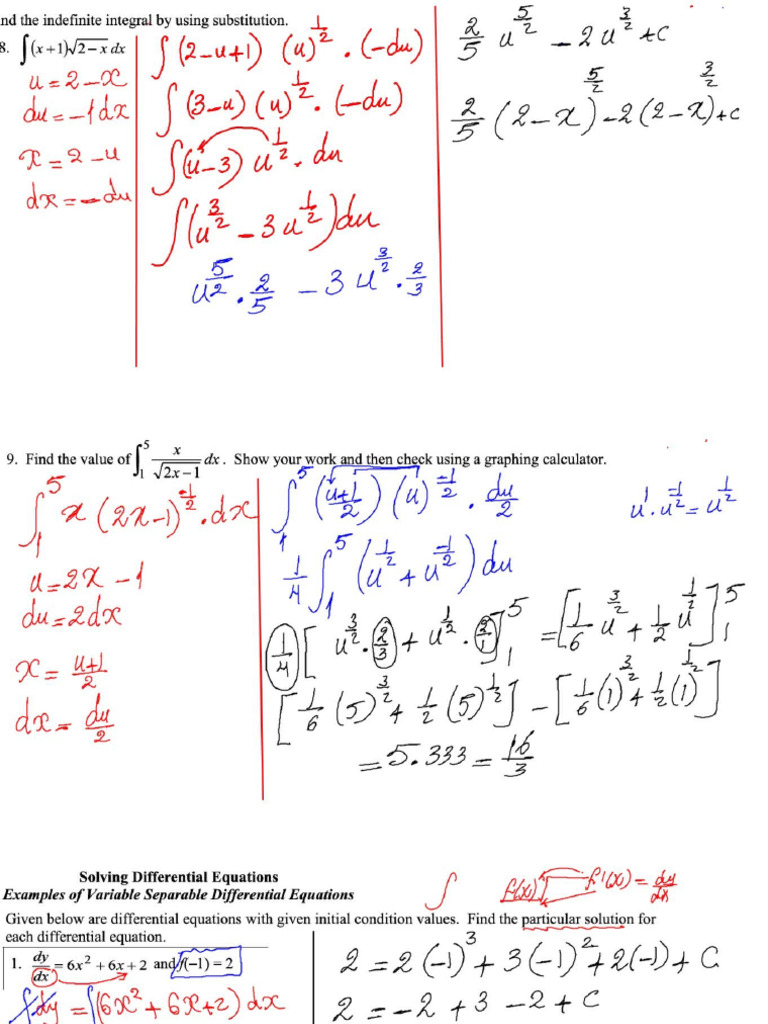 nd the indefinite integral by using substitution.
8. ∫(x+1)√(2−x) dx
u = 2 − x
du = −1dx
x = 2 − u
dx = −du
∫(2−u+1) (u)^(1/2) · (−du)
∫(3−u)(u)^(1/2) · (−du)
∫(u−3) u^(1/2) · du
∫(u^(3/2) − 3u^(1/2))du
u^(5/2) · 2/5 − 3u^(3/2) · 2/3
2/5 u^(5/2) − 2u^(3/2) + c
2/5 (2−x)^(5/2) − 2(2−x)^(3/2) + c
9. Find the value of ∫₁⁵ x/√(2x−1) dx. Show your work and then check using a graphing calculator.
∫₁⁵ x(2x−1)^(−1/2) · dx
u = 2x − 1
du = 2dx
x = (u+1)/2
dx = du/2
∫₁⁵ ((u+1)/2) (u)^(−1/2) · du/2
u¹ · u^(−1/2) = u^(1/2)
1/4 ∫₁⁵ (u^(1/2) + u^(−1/2)) du
1/4 [u^(3/2) · 2/3 + u^(1/2) · 2/1]₁⁵ = [1/6 u^(3/2) + 1/2 u^(1/2)]₁⁵
[1/6 (5)^(3/2) + 1/2 (5)^(1/2)] − [1/6 (1)^(3/2) + 1/2 (1)^(1/2)]
= 5.333 = 16/3
Solving Differential Equations
Examples of Variable Separable Differential Equations
∫ f(x) f'(x) = dy/dx
Given below are differential equations with given initial condition values. Find the particular solution for
each differential equation.
1. dy/dx = 6x² + 6x + 2 and f(−1) = 2
∫dy = ∫(6x² + 6x + 2) dx
2 = 2(−1)³ + 3(−1)² + 2(−1) + C
2 = −2 + 3 − 2 + C